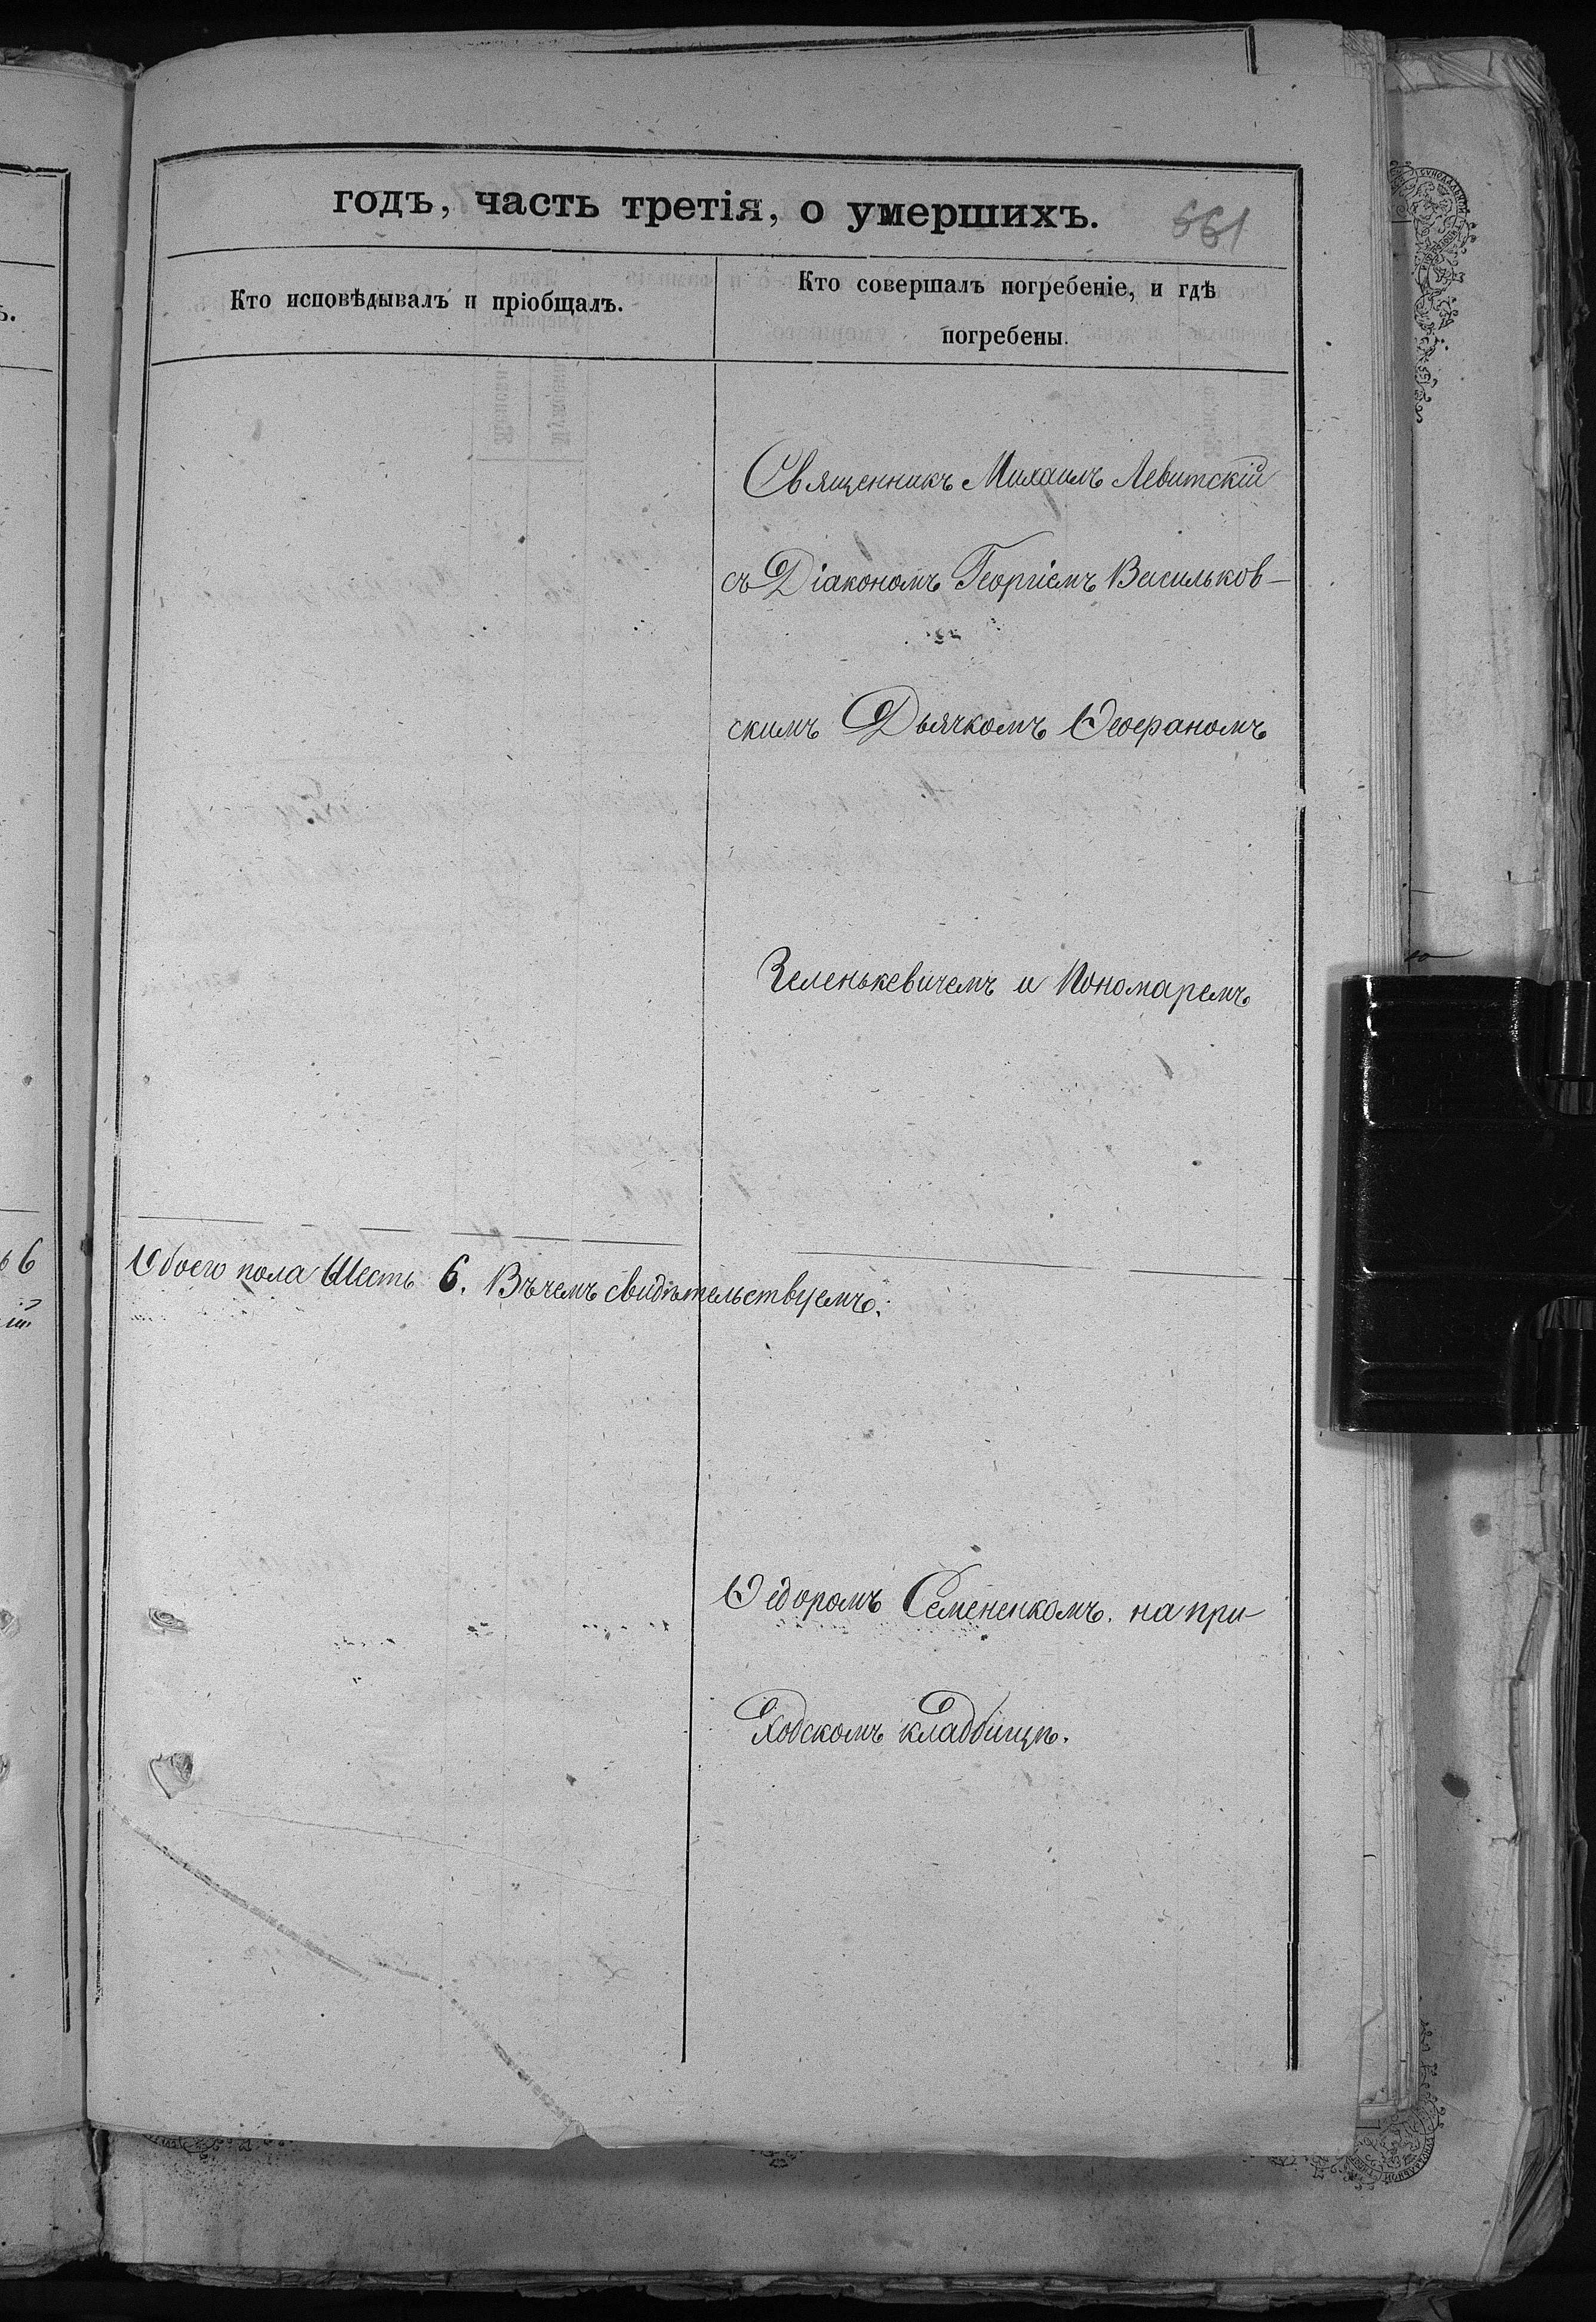 годъ, часть третія, о умершихъ.
661
Кто исповѣдывалъ и пріобщалъ.
Кто совершалъ погребеніе, и гдѣ
погребены.
Священникъ Михаилъ Левитскій
съ Діакономъ Георгіемъ Васильков-
скимъ Дьячкомъ Ѳеофаномъ
Зеленькевичемъ и Пономаремъ
Обоего пола Шесть 6. Въ чемъ свидѣтельствуемъ:
Ѳедоромъ Семененкомъ. на при-
ходскомъ кладбищѣ.
6